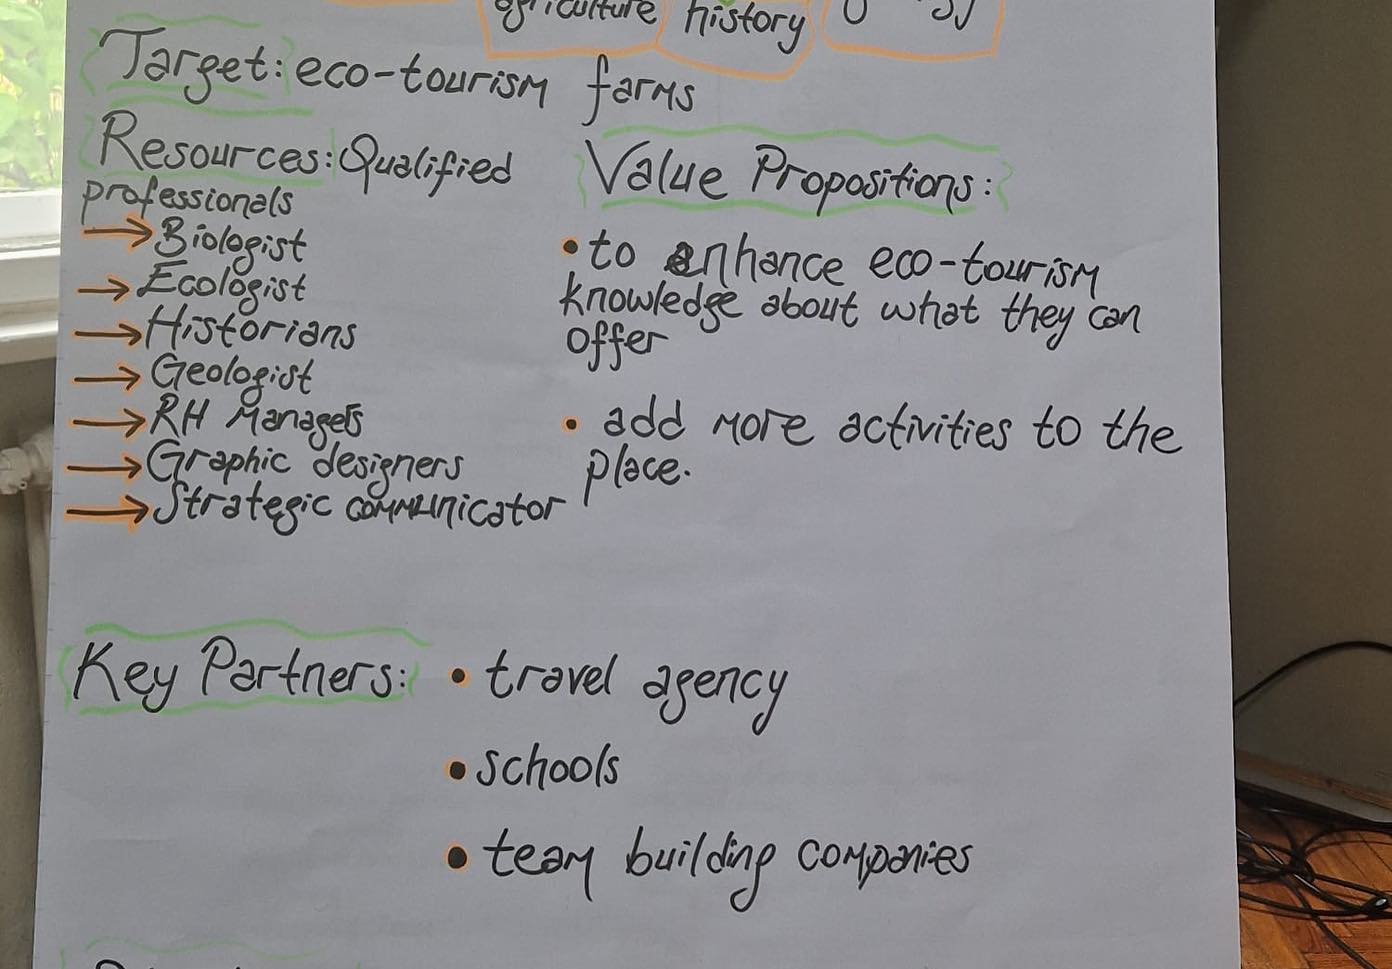 agriculture history
Target: eco-tourism farms
Resources: Qualified
professionals
→ Biologist
→ Ecologist
→ Historians
→ Geologist
→ RH Managers
→ Graphic designers
→ Strategic communicator
Value Propositions:
• to enhance eco-tourism
knowledge about what they can
offer
• add more activities to the
place.
Key Partners: • travel agency
• schools
• team building companies